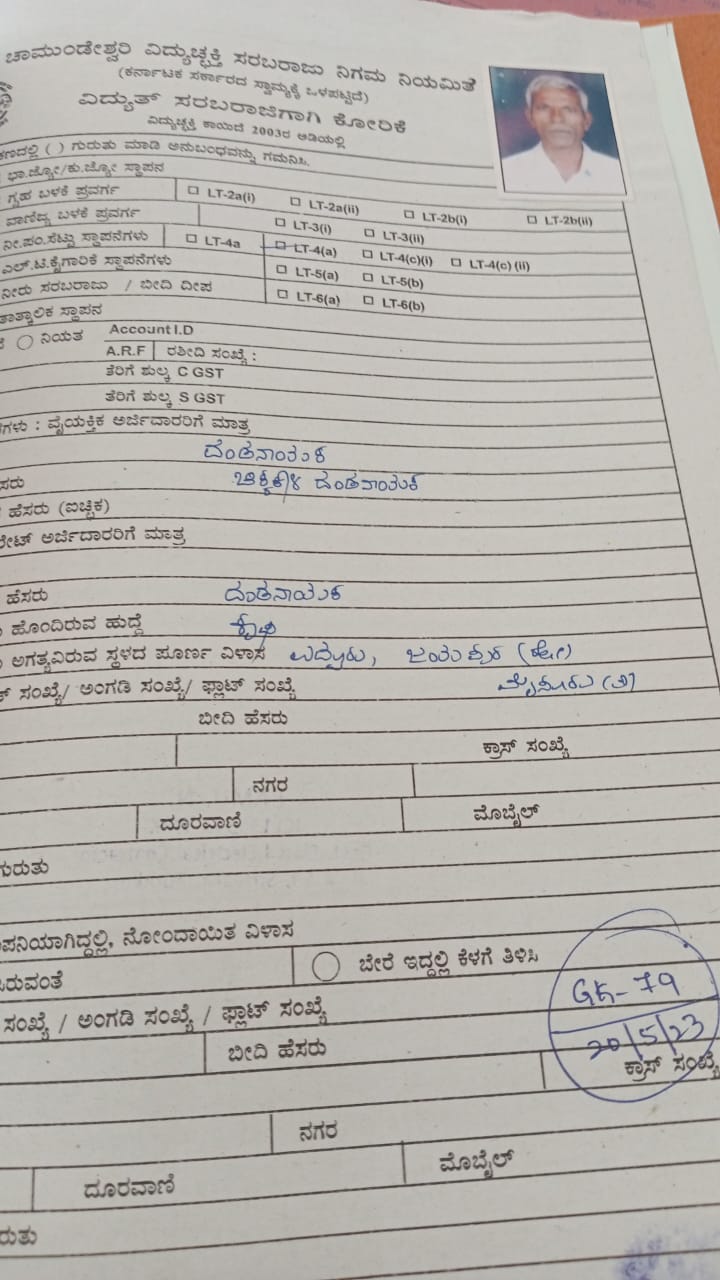 ಚಾಮುಂಡೇಶ್ವರಿ ವಿದ್ಯುಚ್ಛಕ್ತಿ ಸರಬರಾಜು ನಿಗಮ ನಿಯಮಿತ
(ಕರ್ನಾಟಕ ಸರ್ಕಾರದ ಸ್ವಾಮ್ಯಕ್ಕೆ ಒಳಪಟ್ಟಿದೆ)
ವಿದ್ಯುತ್ ಸರಬರಾಜಿಗಾಗಿ ಕೋರಿಕೆ
ವಿದ್ಯುಚ್ಛಕ್ತಿ ಕಾಯಿದೆ 2003ರ ಅಡಿಯಲ್ಲಿ
( ) ಗುರುತು ಮಾಡಿ ಅನುಬಂಧವನ್ನು ಗಮನಿಸಿ.
ಭಾ.ಜ್ಯೋ/ಕು.ಜ್ಯೋ ಸ್ಥಾಪನ
ಗೃಹ ಬಳಕೆ ಪ್ರವರ್ಗ LT-2a(i) LT-2a(ii) LT-2b(i) LT-2b(ii)
ವಾಣಿಜ್ಯ ಬಳಕೆ ಪ್ರವರ್ಗ LT-3(i) LT-3(ii)
ನೀ.ಪಂ.ಸೆಟ್ಟು ಸ್ಥಾಪನೆಗಳು LT-4a LT-4(a) LT-4(c)(i) LT-4(c) (ii)
ಎಲ್.ಟಿ.ಕೈಗಾರಿಕೆ ಸ್ಥಾಪನೆಗಳು LT-5(a) LT-5(b)
ನೀರು ಸರಬರಾಜು / ಬೀದಿ ದೀಪ LT-6(a) LT-6(b)
ತಾತ್ಕಾಲಿಕ ಸ್ಥಾಪನ
ನಿಯತ Account I.D
A.R.F ರಶೀದಿ ಸಂಖ್ಯೆ :
ತೆರಿಗೆ ಶುಲ್ಕ C GST
ತೆರಿಗೆ ಶುಲ್ಕ S GST
ಗಳು : ವೈಯಕ್ತಿಕ ಅರ್ಜಿದಾರರಿಗೆ ಮಾತ್ರ
ದಂಡನಾಯಕ
ಸರು ದಂಡನಾಯಕ
ಹೆಸರು (ಐಚ್ಛಿಕ)
ರೇಟ್ ಅರ್ಜಿದಾರರಿಗೆ ಮಾತ್ರ
ಹೆಸರು ದಂಡನಾಯಕ
ಹೊಂದಿರುವ ಹುದ್ದೆ ಕೃಷಿ
ಅಗತ್ಯವಿರುವ ಸ್ಥಳದ ಪೂರ್ಣ ವಿಳಾಸ (ಹೋ)
ಸಂಖ್ಯೆ/ ಅಂಗಡಿ ಸಂಖ್ಯೆ/ ಫ್ಲಾಟ್ ಸಂಖ್ಯೆ ಮೈಸೂರು (ತಾ)
ಬೀದಿ ಹೆಸರು
ಕ್ರಾಸ್ ಸಂಖ್ಯೆ
ನಗರ
ದೂರವಾಣಿ ಮೊಬೈಲ್
ಗುರುತು
ಪನಿಯಾಗಿದ್ದಲ್ಲಿ, ನೋಂದಾಯಿತ ವಿಳಾಸ
ರುವಂತೆ ಬೇರೆ ಇದ್ದಲ್ಲಿ ಕೆಳಗೆ ತಿಳಿಸಿ
GK-79
ಸಂಖ್ಯೆ / ಅಂಗಡಿ ಸಂಖ್ಯೆ / ಫ್ಲಾಟ್ ಸಂಖ್ಯೆ
20/5/23
ಬೀದಿ ಹೆಸರು
ಕ್ರಾಸ್ ಸಂಖ್ಯೆ
ನಗರ
ದೂರವಾಣಿ ಮೊಬೈಲ್
ರುತು